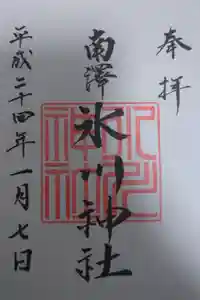 奉拝
南澤
氷川神社
平成二十四年一月七日